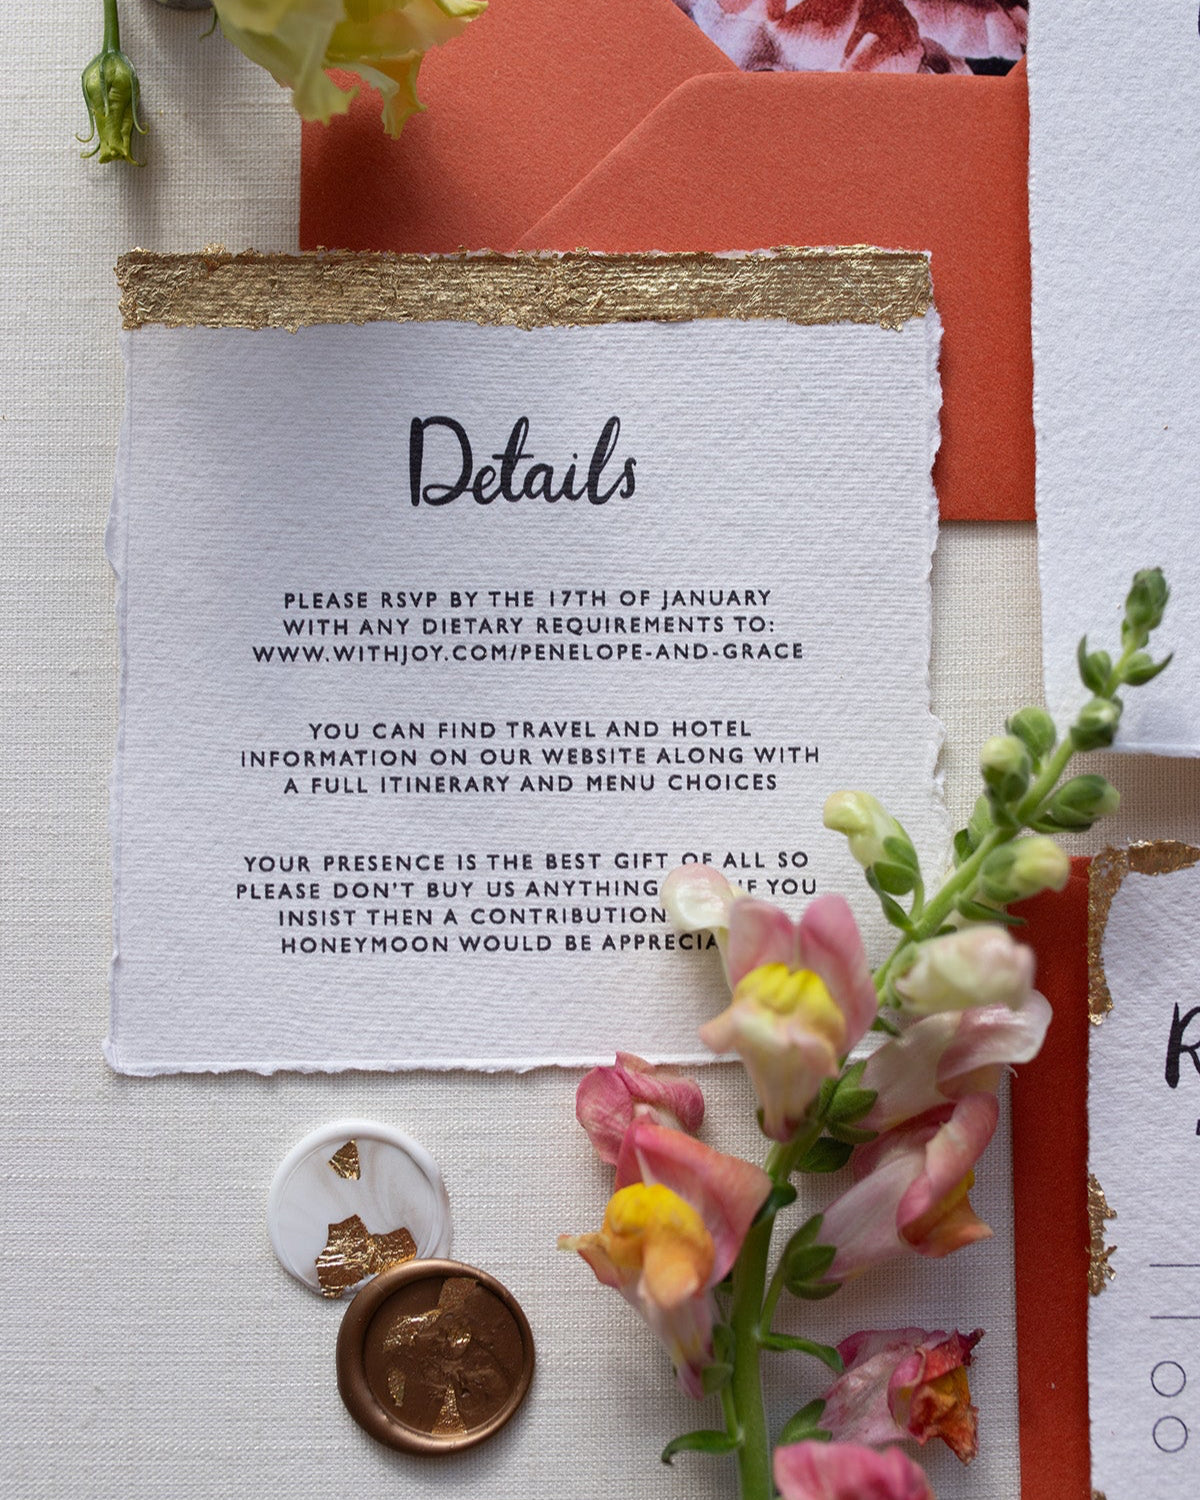 Details
PLEASE RSVP BY THE 17TH OF JANUARY
WITH ANY DIETARY REQUIREMENTS TO:
WWW.WITHJOY.COM/PENELOPE-AND-GRACE
YOU CAN FIND TRAVEL AND HOTEL
INFORMATION ON OUR WEBSITE ALONG WITH
A FULL ITINERARY AND MENU CHOICES
YOUR PRESENCE IS THE BEST GIFT OF ALL SO
PLEASE DON'T BUY US ANYTHING IF YOU
INSIST THEN A CONTRIBUTION
HONEYMOON WOULD BE
R